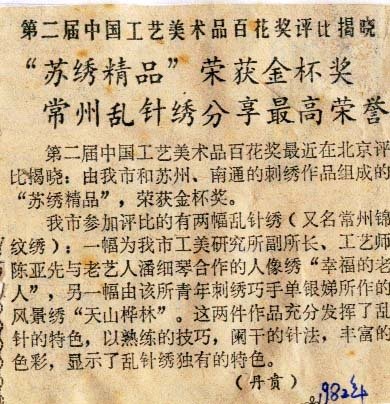 第二届中国工艺美术品百花奖评比揭晓
“苏绣精品”荣获金杯奖
常州乱针绣分享最高荣誉
第二届中国工艺美术品百花奖最近在北京评
比揭晓：由我市和苏州、南通的刺绣作品组成的
“苏绣精品”，荣获金杯奖。
我市参加评比的有两幅乱针绣（又名常州锦
纹绣）：一幅为我市工美研究所副所长、工艺师
陈亚先与老艺人潘细琴合作的人像绣“幸福的老
人”，另一幅由该所青年刺绣巧手单银娣所作的
风景绣“天山桦林”。这两件作品充分发挥了乱
针的特色，以熟练的技巧，阑干的针法，丰富的
色彩，显示了乱针绣独有的特色。
（丹贡）
1982年